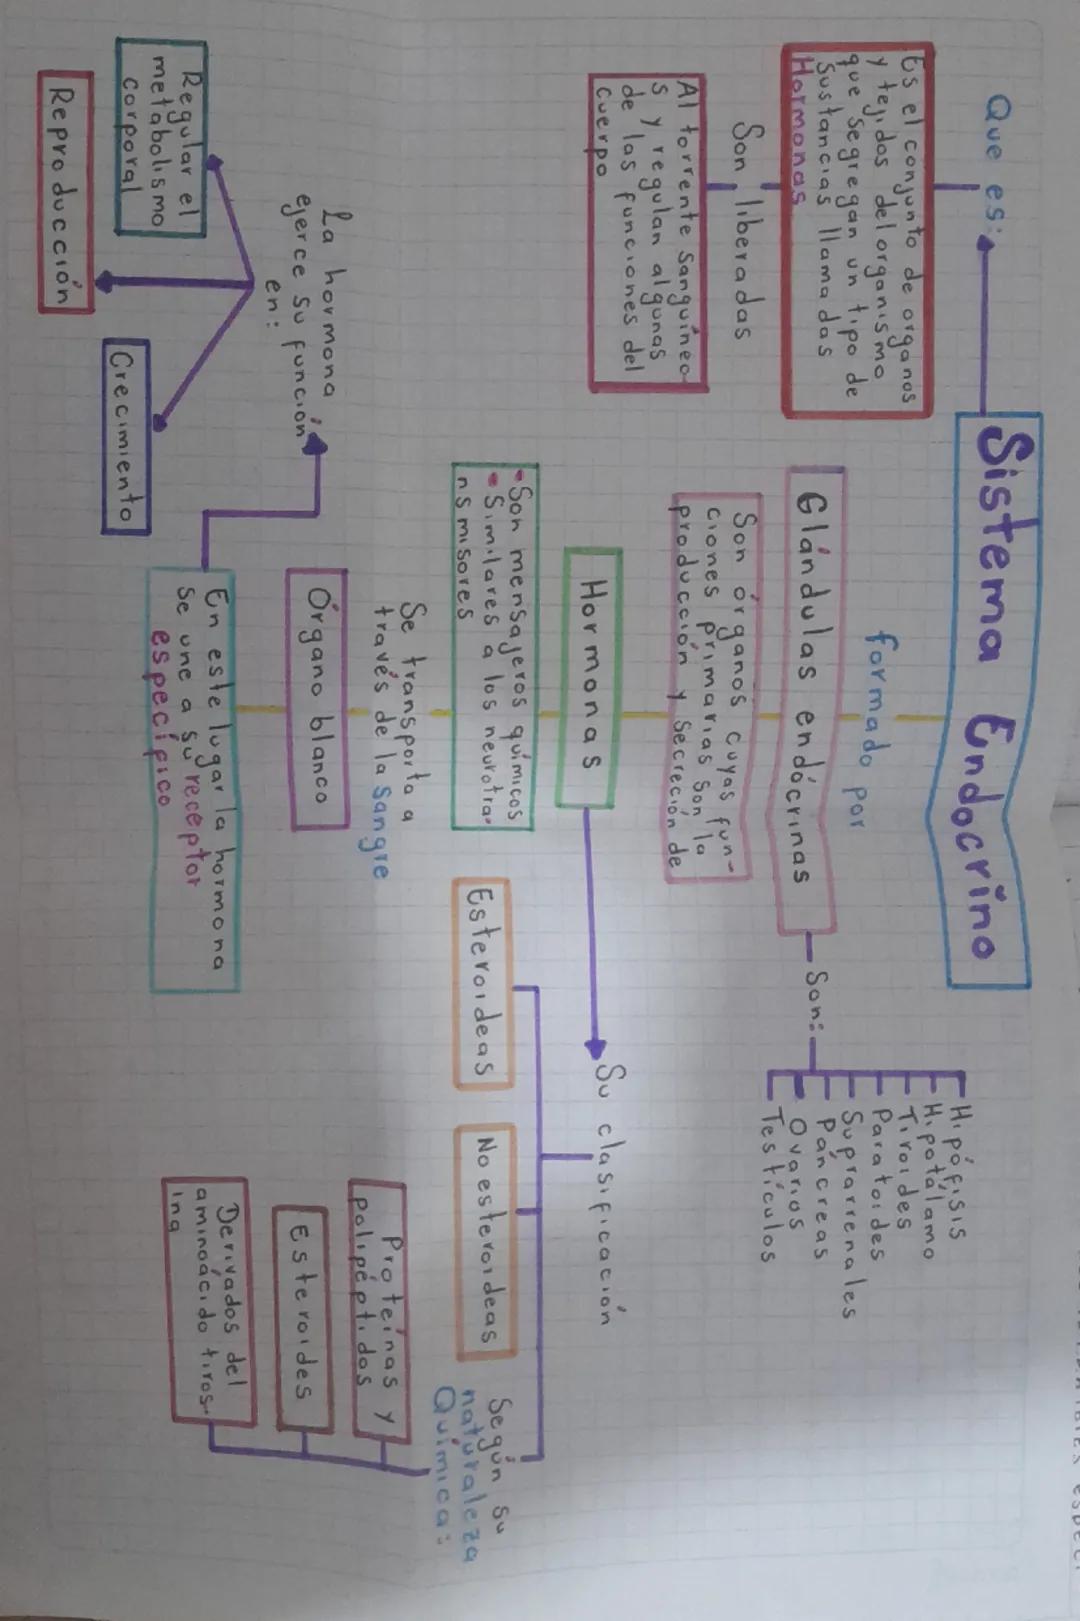 Sistema Endocrino
Que es:
Es el conjunto de organos
y tejidos del organismo
que segregan un tipo de
Sustancias llamadas
Hormonas
Son liberadas
Al torrente sanguíneo
s y regulan algunas
de las funciones del
cuerpo
formado por
Glándulas endócrinas
Son órganos cuyas fun-
ciones primarias son la
producción y secreción de
Son:
Hipófisis
Hipotálamo
Tiroides
Paratoides
Suprarrenales
Páncreas
Ovarios
Testículos
Hormonas
• Son mensajeros químicos
• Similares a los neurotra-
nsmisores
Se transporta a
través de la sangre
Órgano blanco
En este lugar la hormona
se une a su receptor
específico
La hormona
ejerce su función
en:
Regular el
metabolismo
corporal
Reproducción
Crecimiento
Su clasificación
Esteroideas
No esteroideas
Según su
naturaleza
Química:
Proteínas y
polipéptidos
Esteroides
Derivados del
aminoácido tiros-
ina